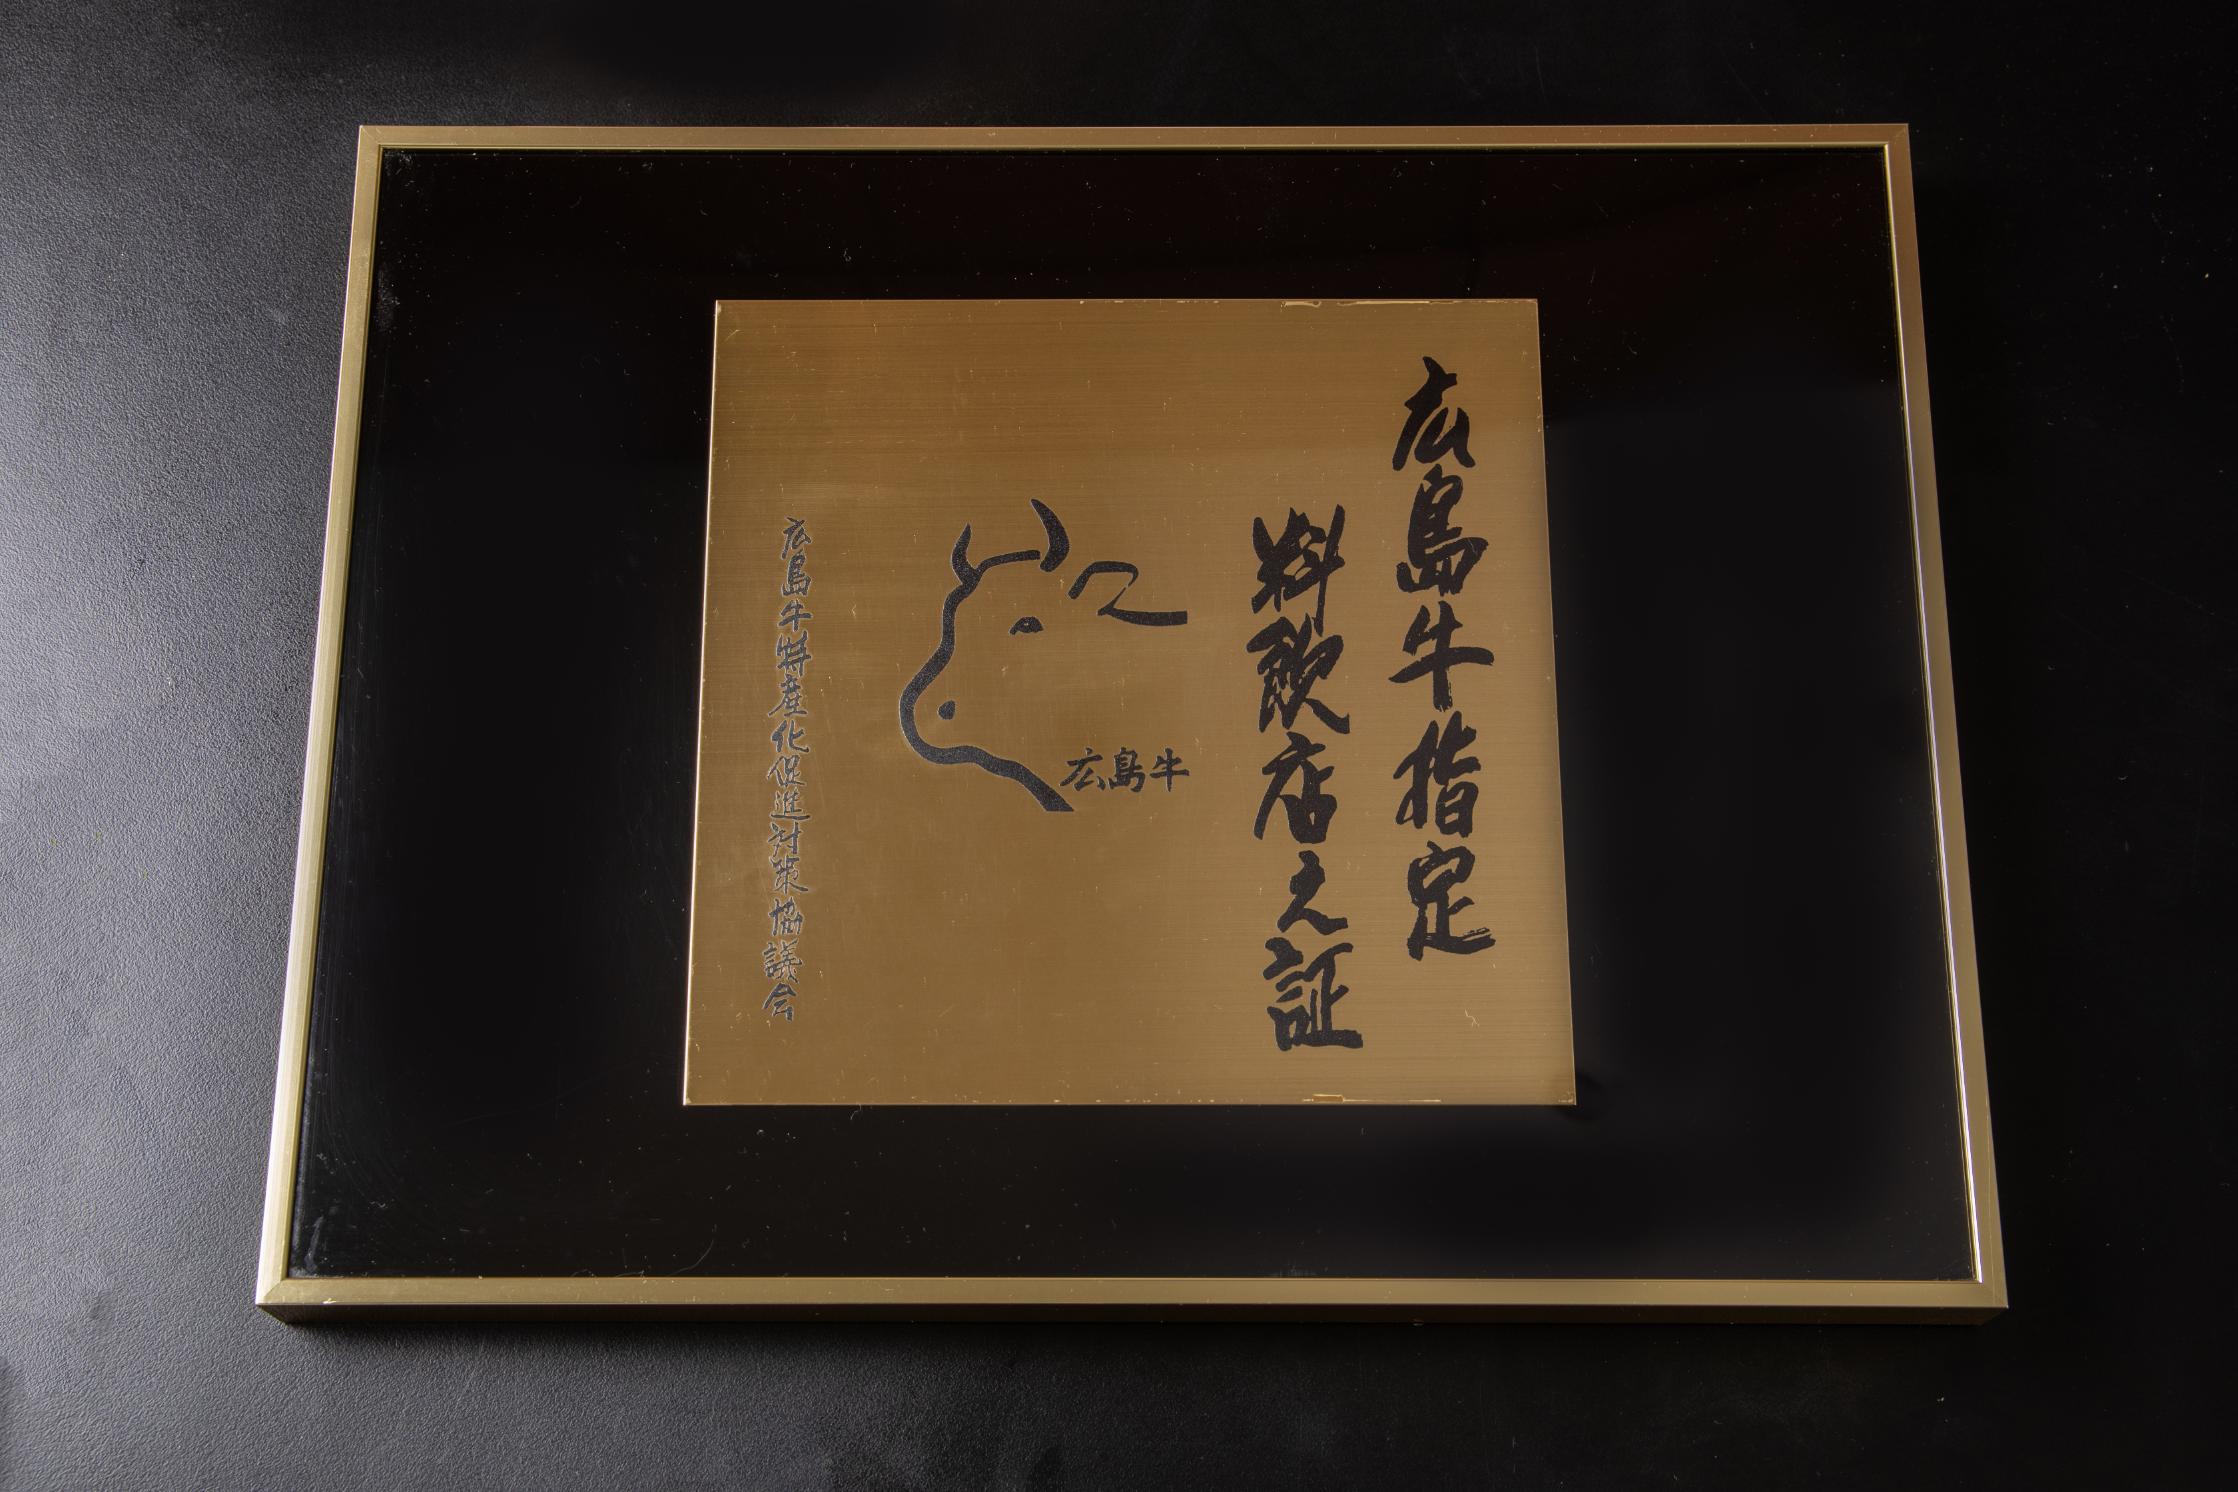 広島牛指定
料飲店之証
広島牛
広島牛特産化促進対策協議会